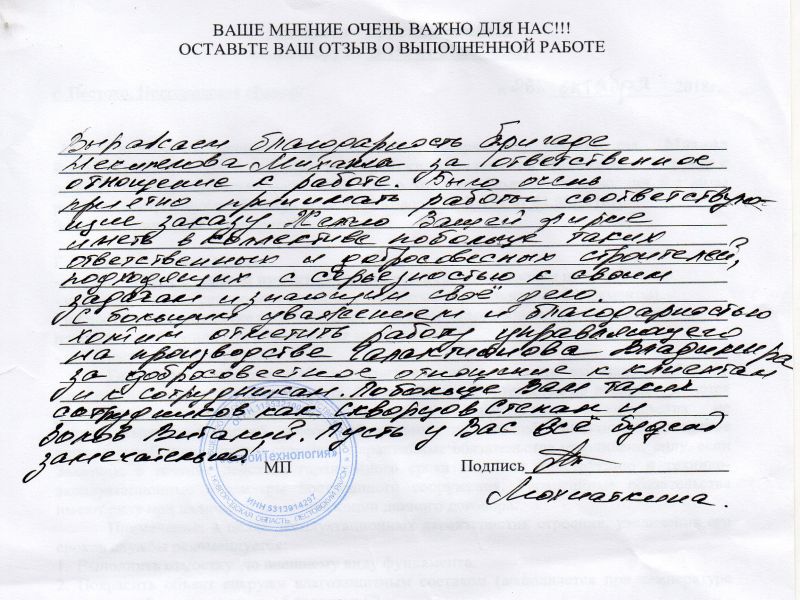 ВАШЕ МНЕНИЕ ОЧЕНЬ ВАЖНО ДЛЯ НАС!!!
ОСТАВЬТЕ ВАШ ОТЗЫВ О ВЫПОЛНЕННОЙ РАБОТЕ
Выражаем благодарность бригаде
Михаила за ответственное
отношение к работе. Было очень
приятно принимать работы соответствую-
щие заказу. Вашей фирме
иметь в коллективе побольше таких
ответственных и добросовесных строителей,
подходящих с серьезностью к своим
задачам и знающим своё дело.
С большим уважением и благодарностью
хотим отметить работу управляющего
на производстве Галактионова Владимира
за добросовестное отношение к клиентам
и к сотрудникам. Побольше Вам таких
сотрудников как Скворцов Степан и
Виталий. Пусть у Вас всё будет
замечательно
МП Подпись
Мохнаткина.
ройТехнология»
НОВГОРОДСКАЯ ОБЛАСТЬ, ПЕСТОВСКИЙ РАЙОН
ИНН 5313914297